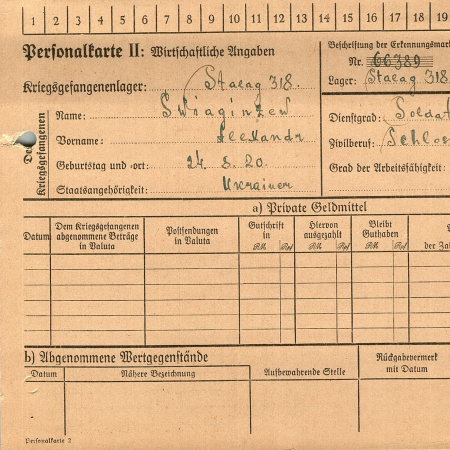 1 2 3 4 5 6 7 8 9 10 11 12 13 14 15 16 17 18 19
Personalkarte II: Wirtschaftliche Angaben
Beschriftung der Erkennungsmar
Nr. 66389
Kriegsgefangenenlager: Stalag 318.
Lager: Stalag 318
Des Kriegsgefangenen
Name: Swiaginzew
Dienstgrad: Soldat
Vorname: Alexandr
Zivilberuf: Schlos
Geburtstag und -ort: 24. 8. 20.
Grad der Arbeitsfähigkeit:
Staatsangehörigkeit: Ukrainer
a) Private Geldmittel
Datum
Dem Kriegsgefangenen abgenommene Beträge in Valuta
Postsendungen in Valuta
Gutschrift in
RM. Rpf
Hiervon ausgezahlt
RM. Rpf
Bleibt Guthaben
RM. Rpf
der Za
b) Abgenommene Wertgegenstände
Datum
Nähere Bezeichnung
Aufbewahrende Stelle
Rückgabevermerk mit Datum
Personalkarte 2